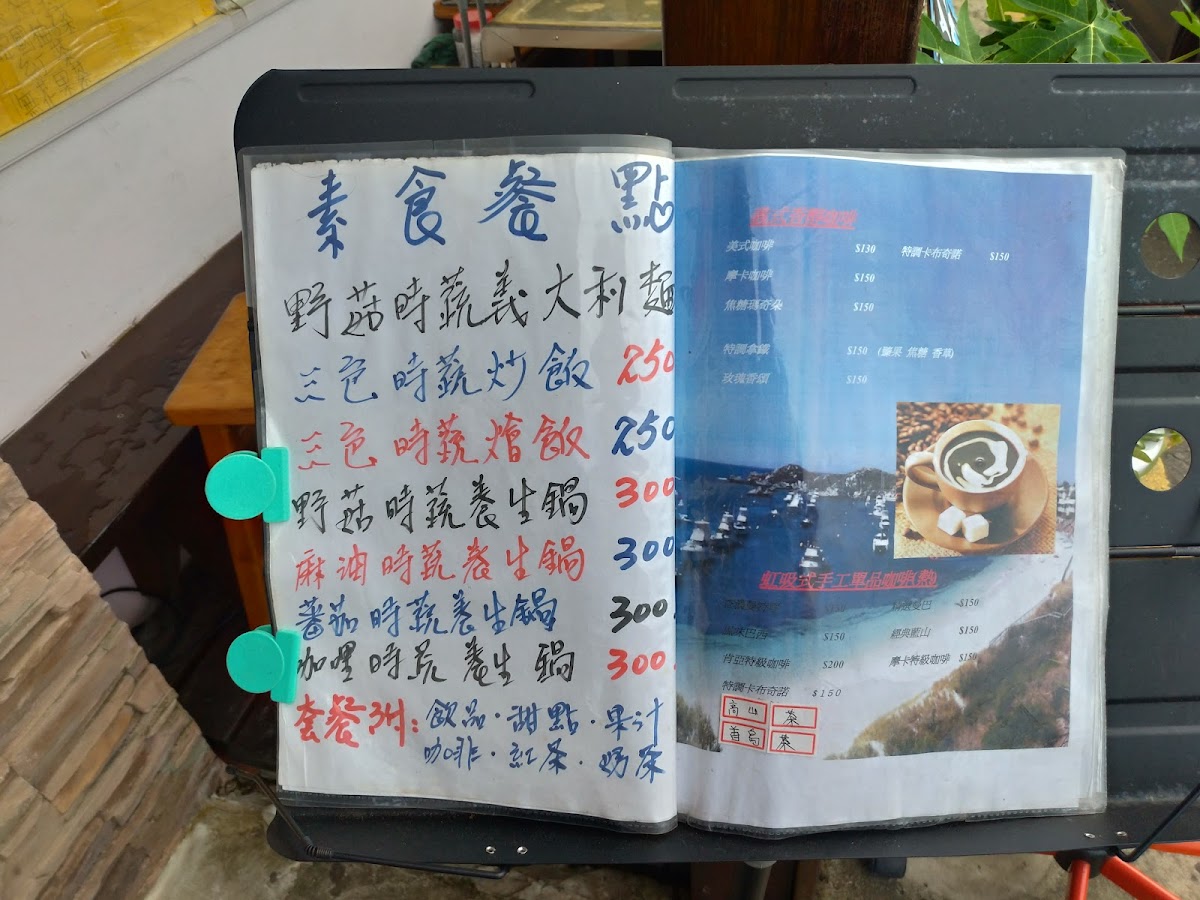 素食餐點
野菇時蔬義大利麵
三色時蔬炒飯 250
三色時蔬燴飯 250
野菇時蔬養生鍋 300
麻油時蔬養生鍋 300
蕃茄時蔬養生鍋 300
咖哩時蔬養生鍋 300
套餐附:飲品·甜點·果汁
咖啡·紅茶·奶茶
美式咖啡 $130 特調卡布奇諾 $150
摩卡咖啡 $150
焦糖瑪奇朵 $150
特調拿鐵 $150 (榛果 焦糖 香草)
玫瑰香頌 $150
虹吸式手工單品咖啡(熱)
$150 $150
巴西 $150 經典藍山 $150
肯亞特級咖啡 $200 摩卡特級咖啡 $150
特調卡布奇諾 $150
高山 茶
首烏 茶